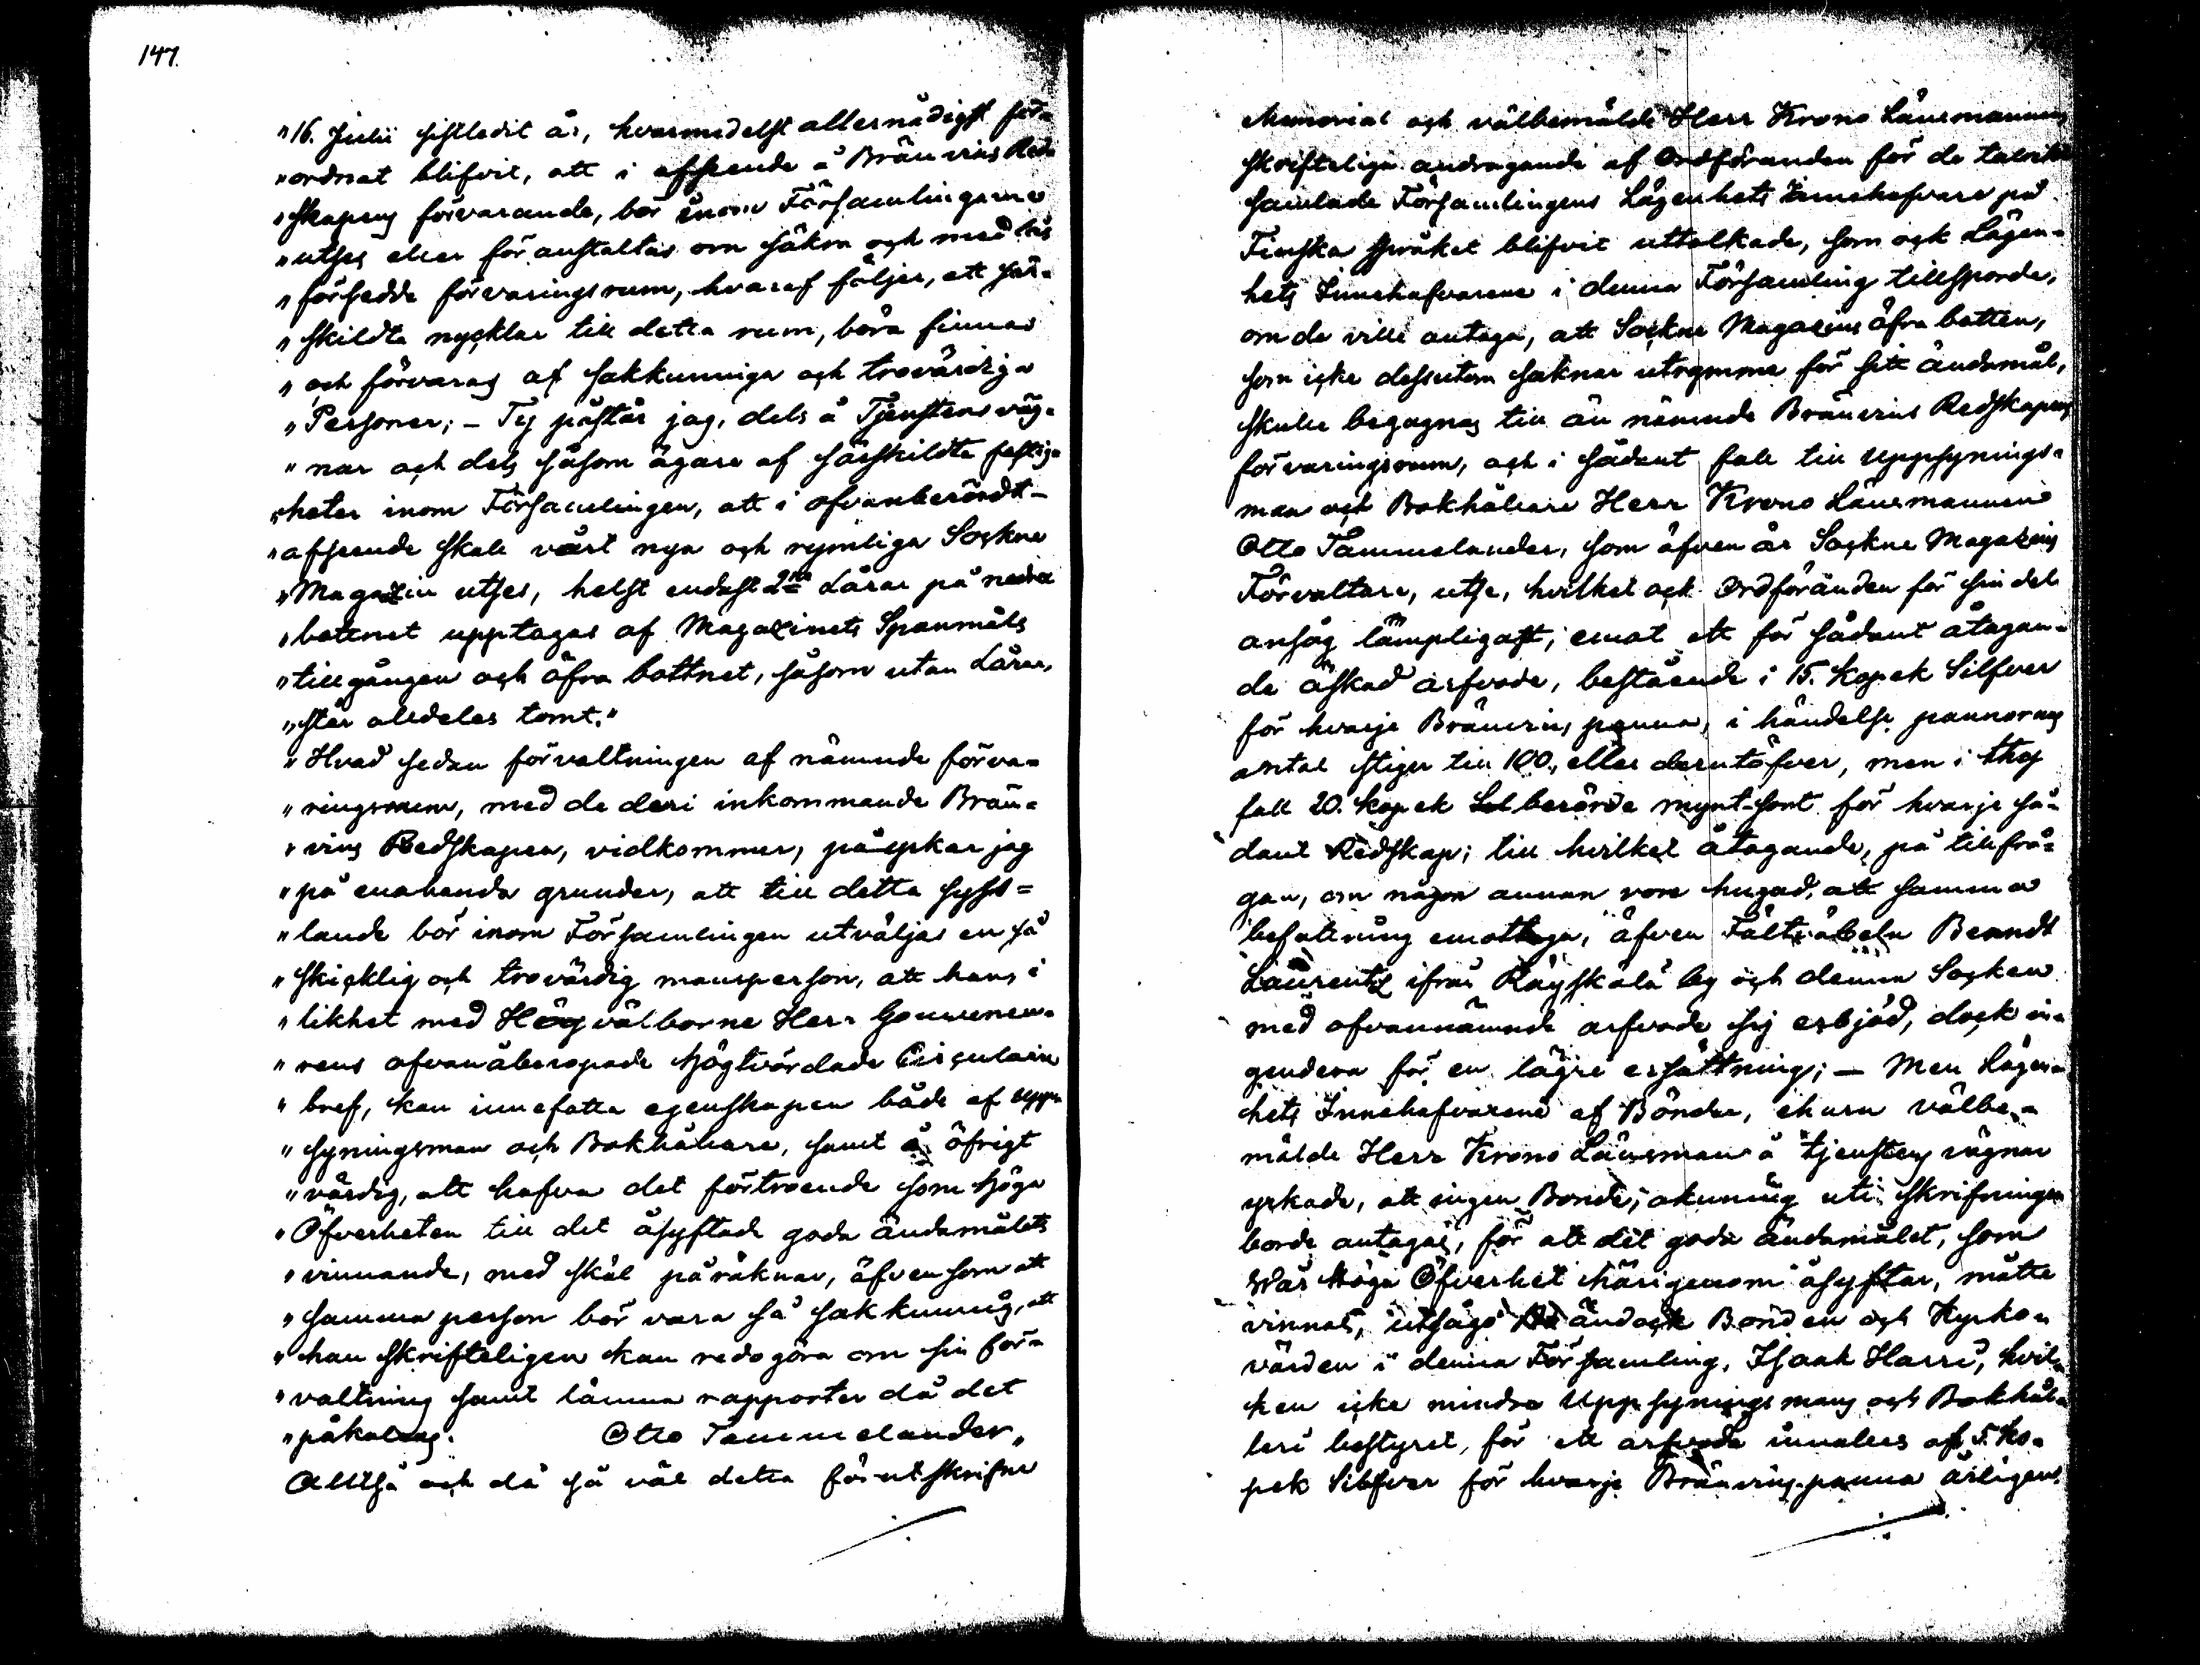 147.
"16. Julii sistledit år, hvarmedelst allernådigst för=
"ordnat blifvit, att i afseende å Bränvins Red=
"skapens förvarande, bör inom Församlingarne
"utses eller föranstaltas om säkra och med lås
"försedde förvaringsrum, hvaraf följer, att sär=
"skildta nycklar till detta rum, böra finnas
"och förvaras af sakkunniga och trovärdiga
"Personer; – Ty påstår jag, dels å Tjenstens väg=
"nar och dels såsom ägare af särskildta fastig=
"heter inom Församlingen, att i ofvanberördt –
"afseende skall vårt nya och rymliga Sockne
"Magazin utses, helst endast 2ne Lårar på nedra
"bottnet upptagas af Magazinets Spanmåls
"tillgången och öfra bottnet, såsom utan Lårar,
"står alldeles tomt."
"Hvad sedan förvaltningen af nämnde förva=
"ringsrum, med de deri inkommande Brän=
"vins Redskapen, vidkommer, påyrkar jag
"på enahanda grunder, att till detta syss=
"lande bör inom Församlingen utväljas en så
"skicklig och trovärdig mansperson, att hans i
"likhet med Högvälborne Herr Gouverneu=
"rens ofvanåberopade högtvördade Circulaire
"bref, kan innefatta egenskapen både af upp=
"syningsman och Bokhållare, samt å öfrigt
"värdig, att hafva det förtroende som Höga
"Öfverheten till det åsyftade goda ändamålets
"vinnande, med skäl påräknar, äfvensom att
"samma person bör vara så sakkunnig, att
"han skrifteligen kan redogöra om sin för=
"valtning samt lämna rapporter då det
"påkallas. Otto Tammelander"
Alltså och då så väl detta förutskrifne
Memorial och välbemälde Herr Krono Länsmannens
skrifteliga andragande af Ordföranden för de talrikt
samlade Församlingens Lägenhets Innehafvare på
Finska språket blifvit uttolkade, som ock Lägen=
hets Innehafvarene i denna Församling tillsporde,
om de ville antaga, att Sockne Magazins öfra botten,
som icke dessutom saknar utrymme för sitt ändamål,
skulle begagnas till än nämnde Bränvins Redskapens
förvaringsrum, och i sådant fall till Uppsynings=
man och Bokhållare Herr Krono Länsmannen
Otto Tammelander, som äfven är Sockne Magazins
Förvaltare, utse, hvilket ock Ordföranden för sin del
ansåg lämpligast; emot ett för sådant åtagan=
de äskad arfvode, bestående i 15. Kopek Silfver
för hvarje Bränvins panna, i händelse pannornas
antal stiger till 100, eller derutöfver, men i thy
fall 20. Kopek berörde mynt-sort för hvarje så=
dant Redskap; till hvilket åtagande, på tillfrå=
gan, om någon annan vore hugad, att samma
befattning emottaga, äfven Fältväbeln Berndt
Laurentz ifrån Räyskälä by och denna Socken
med ofvannämnde arfvode sig erbjöd, dock in=
gendera för en lägre ersättning; – Men Lägen=
hets Innehafvarene af Bönder, ehuru välbe=
mälde Herr Krono Länsman å tjenstens vägnar
yrkade, att ingen Bonde, okunnig uti skrifningen
borde antagas, för att det goda ändamålet, som
Wår Höga Öfverhet härigenom åsyftar, måtte
vinnas, utsågo ändock Bonden och Kyrko=
värden i denna Församling, Isaak Harri, hvil=
ken icke mindre Uppsynings mans och Bokhål=
leri bestyret, för ett arfvode innalles af 5. Ko=
pek Silfver för hvarje Bränvins panna årligen,